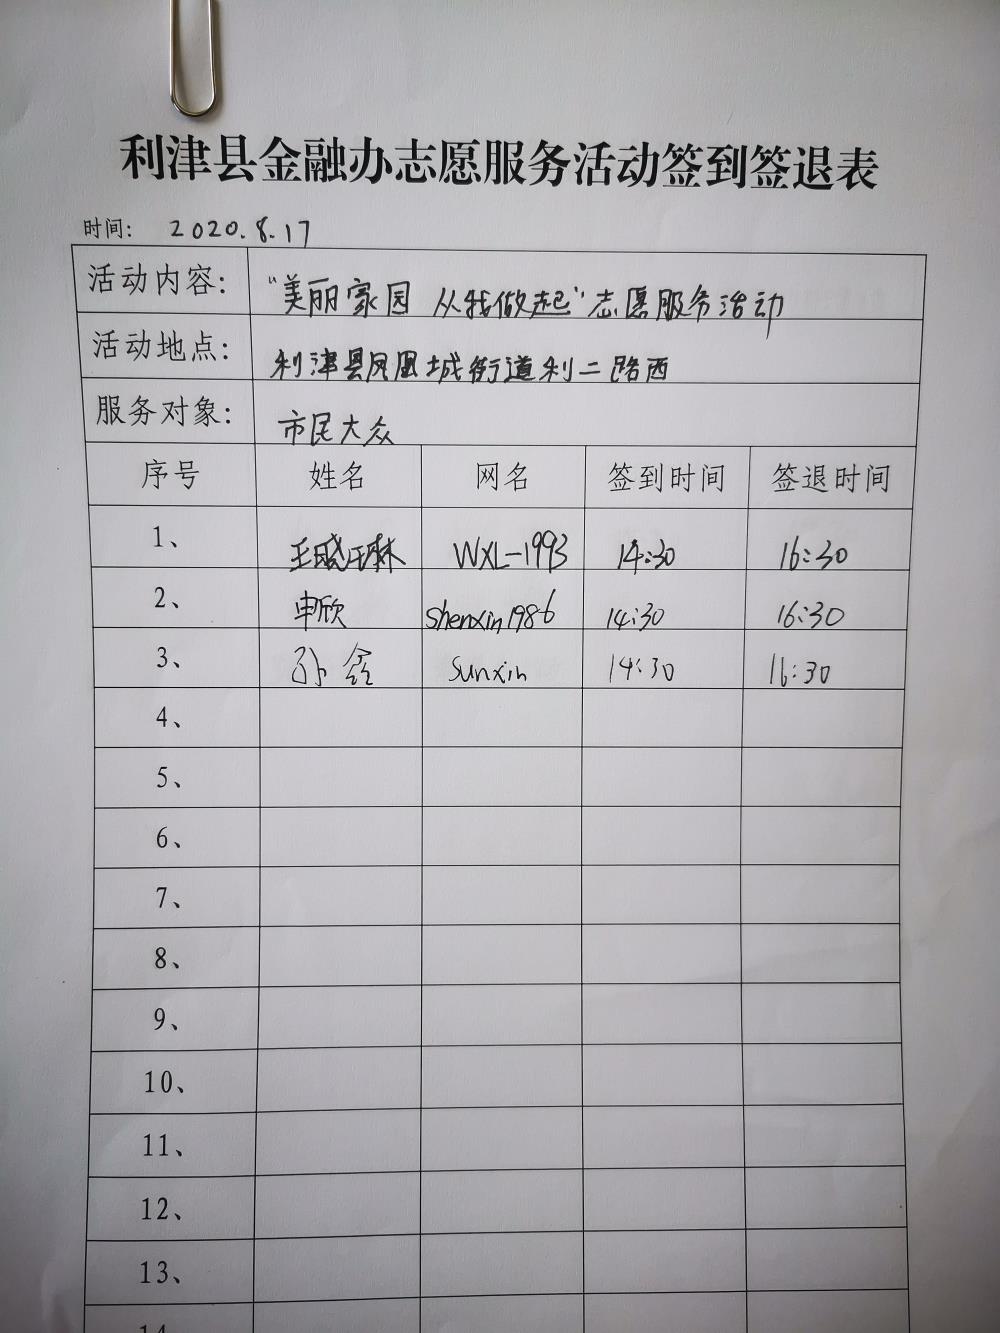 利津县金融办志愿服务活动签到签退表
时间: 2020.8.17
活动内容: "美丽家园 从我做起"志愿服务活动
活动地点: 利津县凤凰城街道利二路西
服务对象: 市民大众
序号 姓名 网名 签到时间 签退时间
1、 王晓琳 WXL-1993 14:30 16:30
2、 申欣 shenxin1986 14:30 16:30
3、 孙鑫 sunxin 14:30 16:30
4、
5、
6、
7、
8、
9、
10、
11、
12、
13、
14